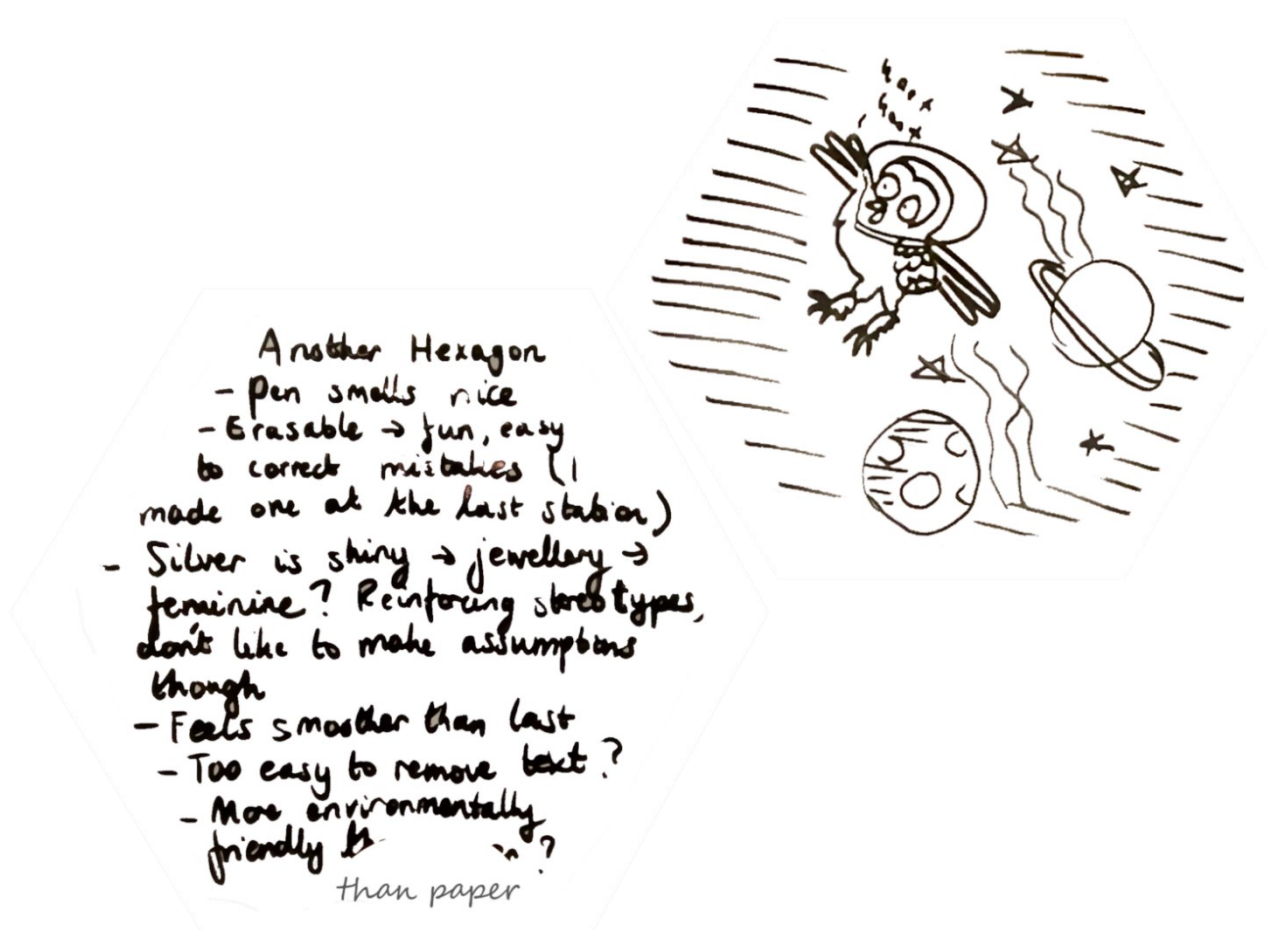 Another Hexagon
- Pen smells nice
- Erasable → fun, easy
to correct mistakes (I
made one at the last station)
- Silver is shiny → jewellery →
feminine? Reinforcing stereotypes,
don't like to make assumptions
though
- Feels smoother than last
- Too easy to remove text?
- More environmentally
friendly ?
than paper